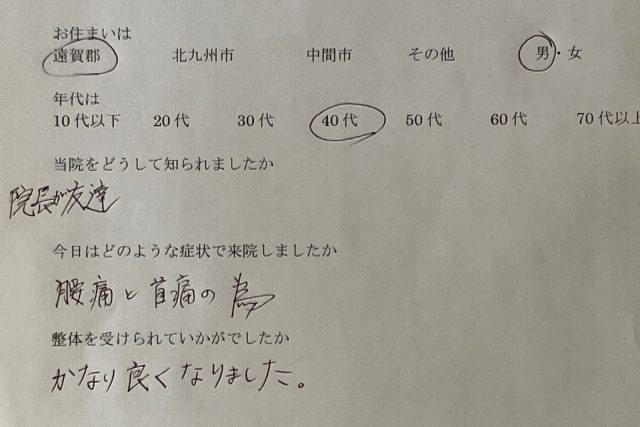 お住まいは
遠賀郡 北九州市 中間市 その他 男・女
年代は
10代以下 20代 30代 40代 50代 60代 70代以上
当院をどうして知られましたか
院長が友達
今日はどのような症状で来院しましたか
腰痛と首痛の為
整体を受けられていかがでしたか
かなり良くなりました。